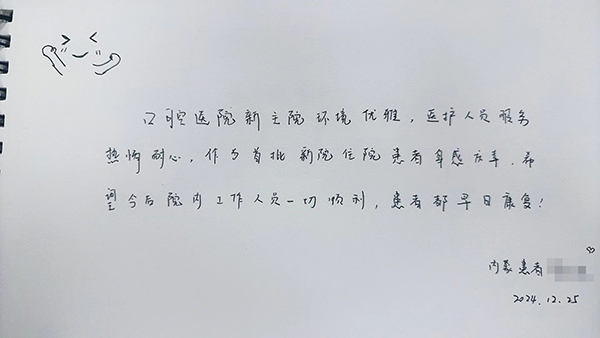 口腔医院新主院环境优雅，医护人员服务
热情耐心，作为首批新院住院患者身感庆幸．希
望今后院内工作人员一切顺利，患者都早日康复！
内蒙患者
2024.12.25